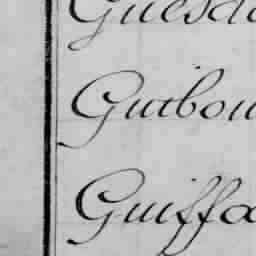 Guesd
Guibou
Guiffa